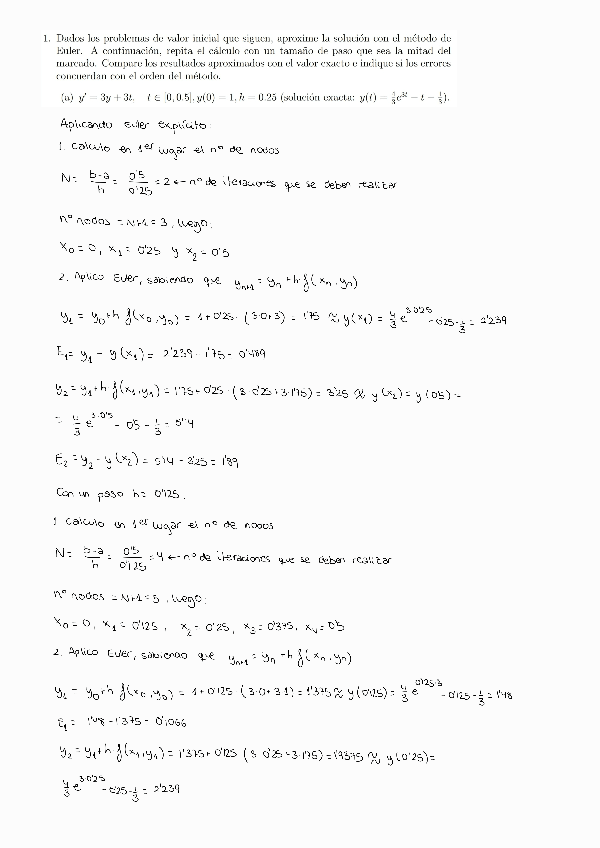 1. Dados los problemas de valor inicial que siguen, aproxime la solución con el método de
Euler. A continuación, repita el cálculo con un tamaño de paso que sea la mitad del
marcado. Compare los resultados aproximados con el valor exacto e indique si los errores
concuerdan con el orden del método.
(a) y' = 3y + 3t, t ∈ [0, 0.5], y(0) = 1, h = 0.25 (solución exacta: y(t) = 4/3 e^{3t} − t − 1/3).
Aplicando Euler explícito:
1. Calculo en 1er lugar el nº de nodos
N = (b-a)/h = 0'5/0'25 = 2 ← nº de iteraciones que se deben realizar
nº nodos = N+1 = 3, luego:
x0 = 0, x1 = 0'25 y x2 = 0'5
2. Aplico Euler, sabiendo que y_{n+1} = y_n + h f(x_n, y_n)
y1 = y0 + h f(x0, y0) = 1 + 0'25 · (3·0+3) = 1'75 ≈ y(x1) = 4/3 e^{3·0'25} - 0'25 - 1/3 = 2'239
E1 = y1 - y(x1) = 2'239 - 1'75 = 0'489
y2 = y1 + h f(x1, y1) = 1'75 + 0'25 · (3·0'25 + 3·1'75) = 3'25 ≈ y(x2) = y(0'5) =
= 4/3 e^{3·0'5} - 0'5 - 1/3 = 5'14
E2 = y2 - y(x2) = 5'14 - 3'25 = 1'89
Con un paso h = 0'125.
1 Calculo en 1er lugar el nº de nodos
N = (b-a)/h = 0'5/0'125 = 4 ← nº de iteraciones que se deben realizar
nº nodos = N+1 = 5, luego:
x0 = 0, x1 = 0'125, x2 = 0'25, x3 = 0'375, x4 = 0'5
2. Aplico Euler, sabiendo que y_{n+1} = y_n + h f(x_n, y_n)
y1 = y0 + h f(x0, y0) = 1 + 0'125 (3·0+3·1) = 1'375 ≈ y(0'125) = 4/3 e^{0'125·3} - 0'125 - 1/3 = 1'48
E1 = 1'48 - 1'375 = 0'1066
y2 = y1 + h f(x1, y1) = 1'375 + 0'125 (3·0'25 + 3·1'75) = 1'9375 ≈ y(0'25) =
4/3 e^{3·0'25} - 0'25 - 1/3 = 2'239